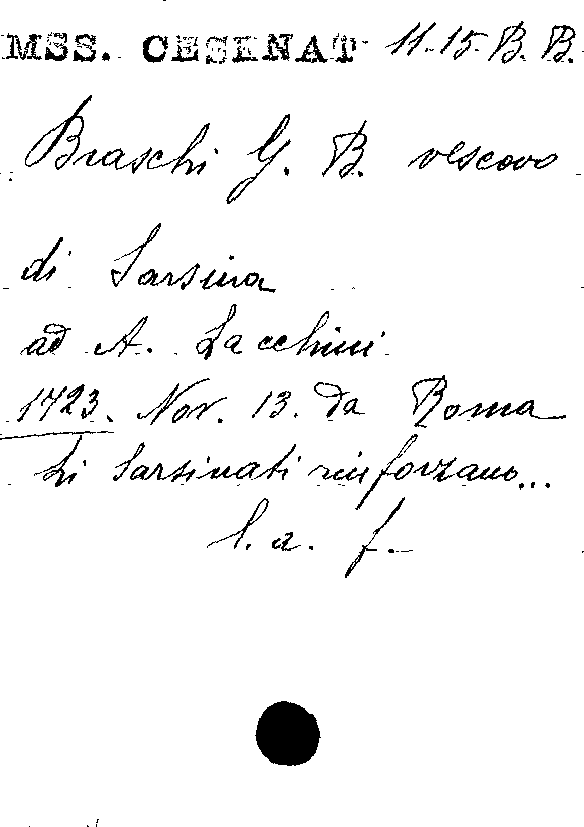 MSS. CESENAT 11-15 B. B.
Braschi G. B. vescovo
di Sarsina
ad A. Lacchini
1723. Nov. 13. da Roma
Li Sarsinati rinforzano...
l. a. f.